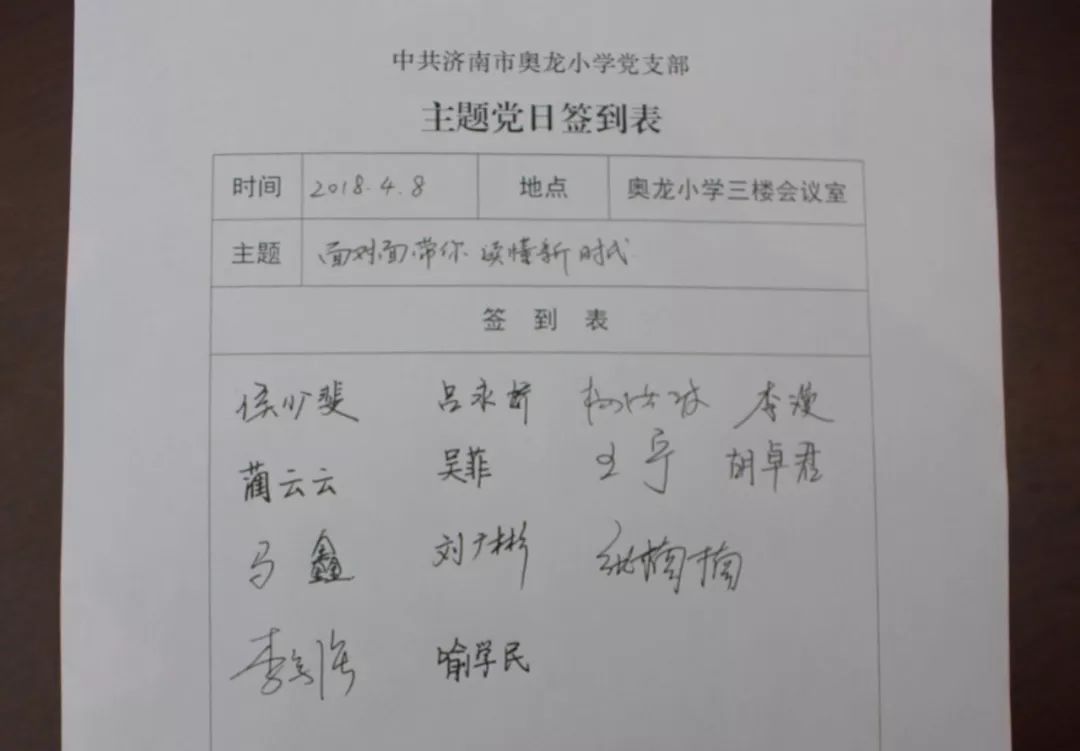 中共济南市奥龙小学党支部
主题党日签到表
时间 2018.4.8 地点 奥龙小学三楼会议室
主题 面对面带你读懂新时代
签到表
侯少斐 吕永 李漫
蔺云云 吴菲 王宁 胡卓君
马鑫 刘广彬 楠楠
李 喻学民